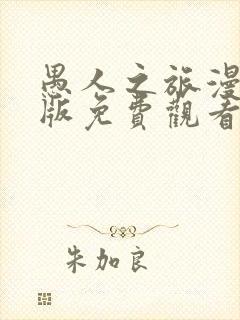 愚人之旅漫
版免費觀看
朱加良